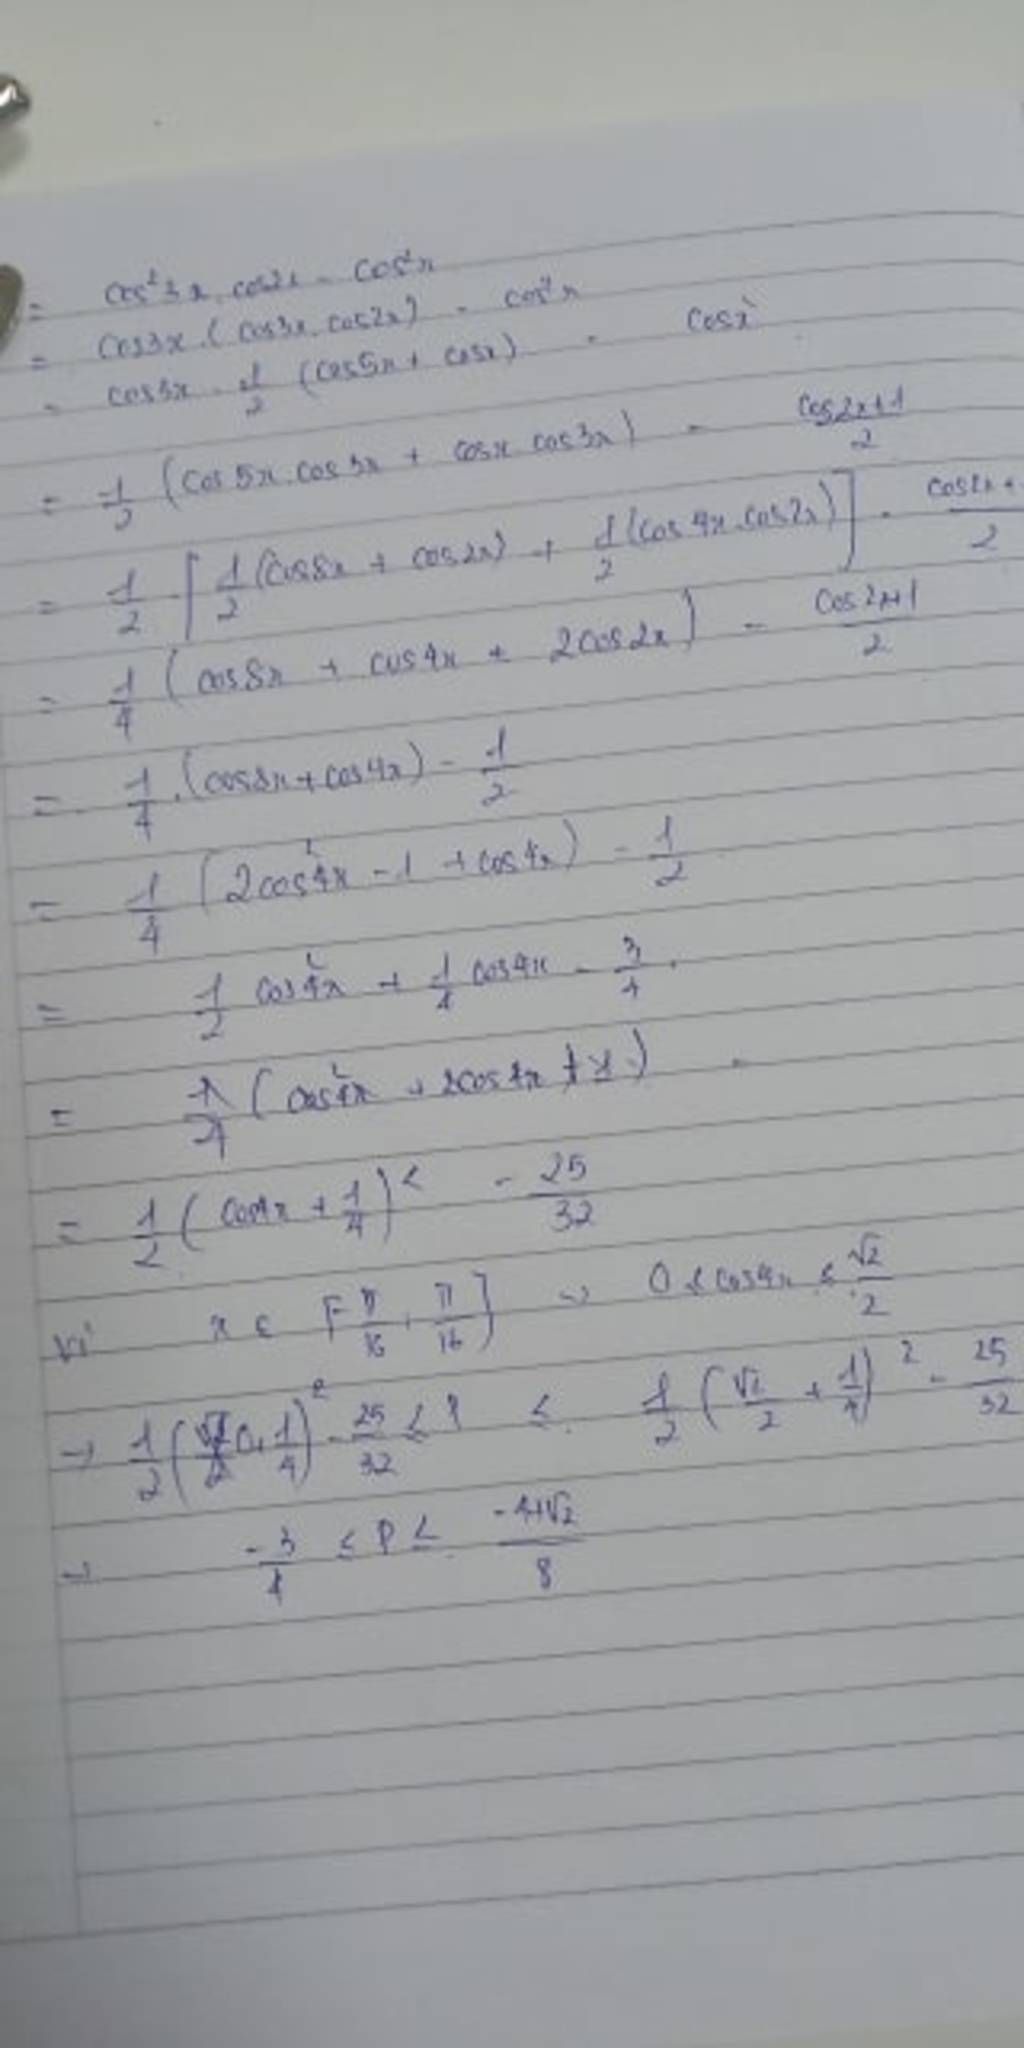 = cos²3x.cos2x - cos²x
= cos3x.(cos3x.cos2x) - cos²x
= cos3x.1/2(cos5x + cosx) - cosx²
= 1/2(cos5x.cos3x + cosx cos3x) - (cos2x+1)/2
= 1/2.[1/2(cos8x + cos2x) + 1/2(cos4x.cos2x)] - (cos2x+)/2
= 1/4(cos8x + cos4x + 2cos2x) - (cos2x+1)/2
= 1/4.(cos8x+cos4x) - 1/2
= 1/4(2cos²4x - 1 + cos4x) - 1/2
= 1/2 cos²4x + 1/4 cos4x - 3/4.
= (cos²4x + 2cos4x
= 1/2(cos4x + 1/4)² - 25/32
Vì x ∈ [-π/16, π/16] → 0 ≤ cos4x ≤ √2/2
→ 1/2(0+1/4)² - 25/32 ≤ P ≤ 1/2(√2/2 + 1/4)² - 25/32
→ -3/4 ≤ P ≤ (-4+√2)/8